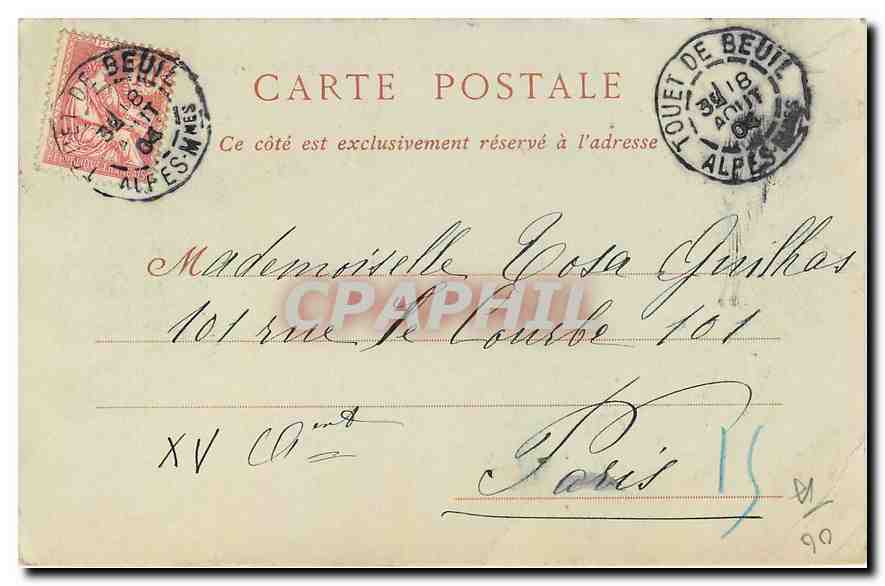 CARTE POSTALE
TOUET DE BEUIL
18
AOUT
ALPES-Mmes
Ce côté est exclusivement réservé à l'adresse
REPUBLIQUE FRANCAISE
TOUET DE BEUIL
18
AOUT
04
ALPES-Mmes
Mademoiselle Rosa Guilhas
CPAPHIL
101 rue le Courbe 101
XV Armt
Paris
15
90